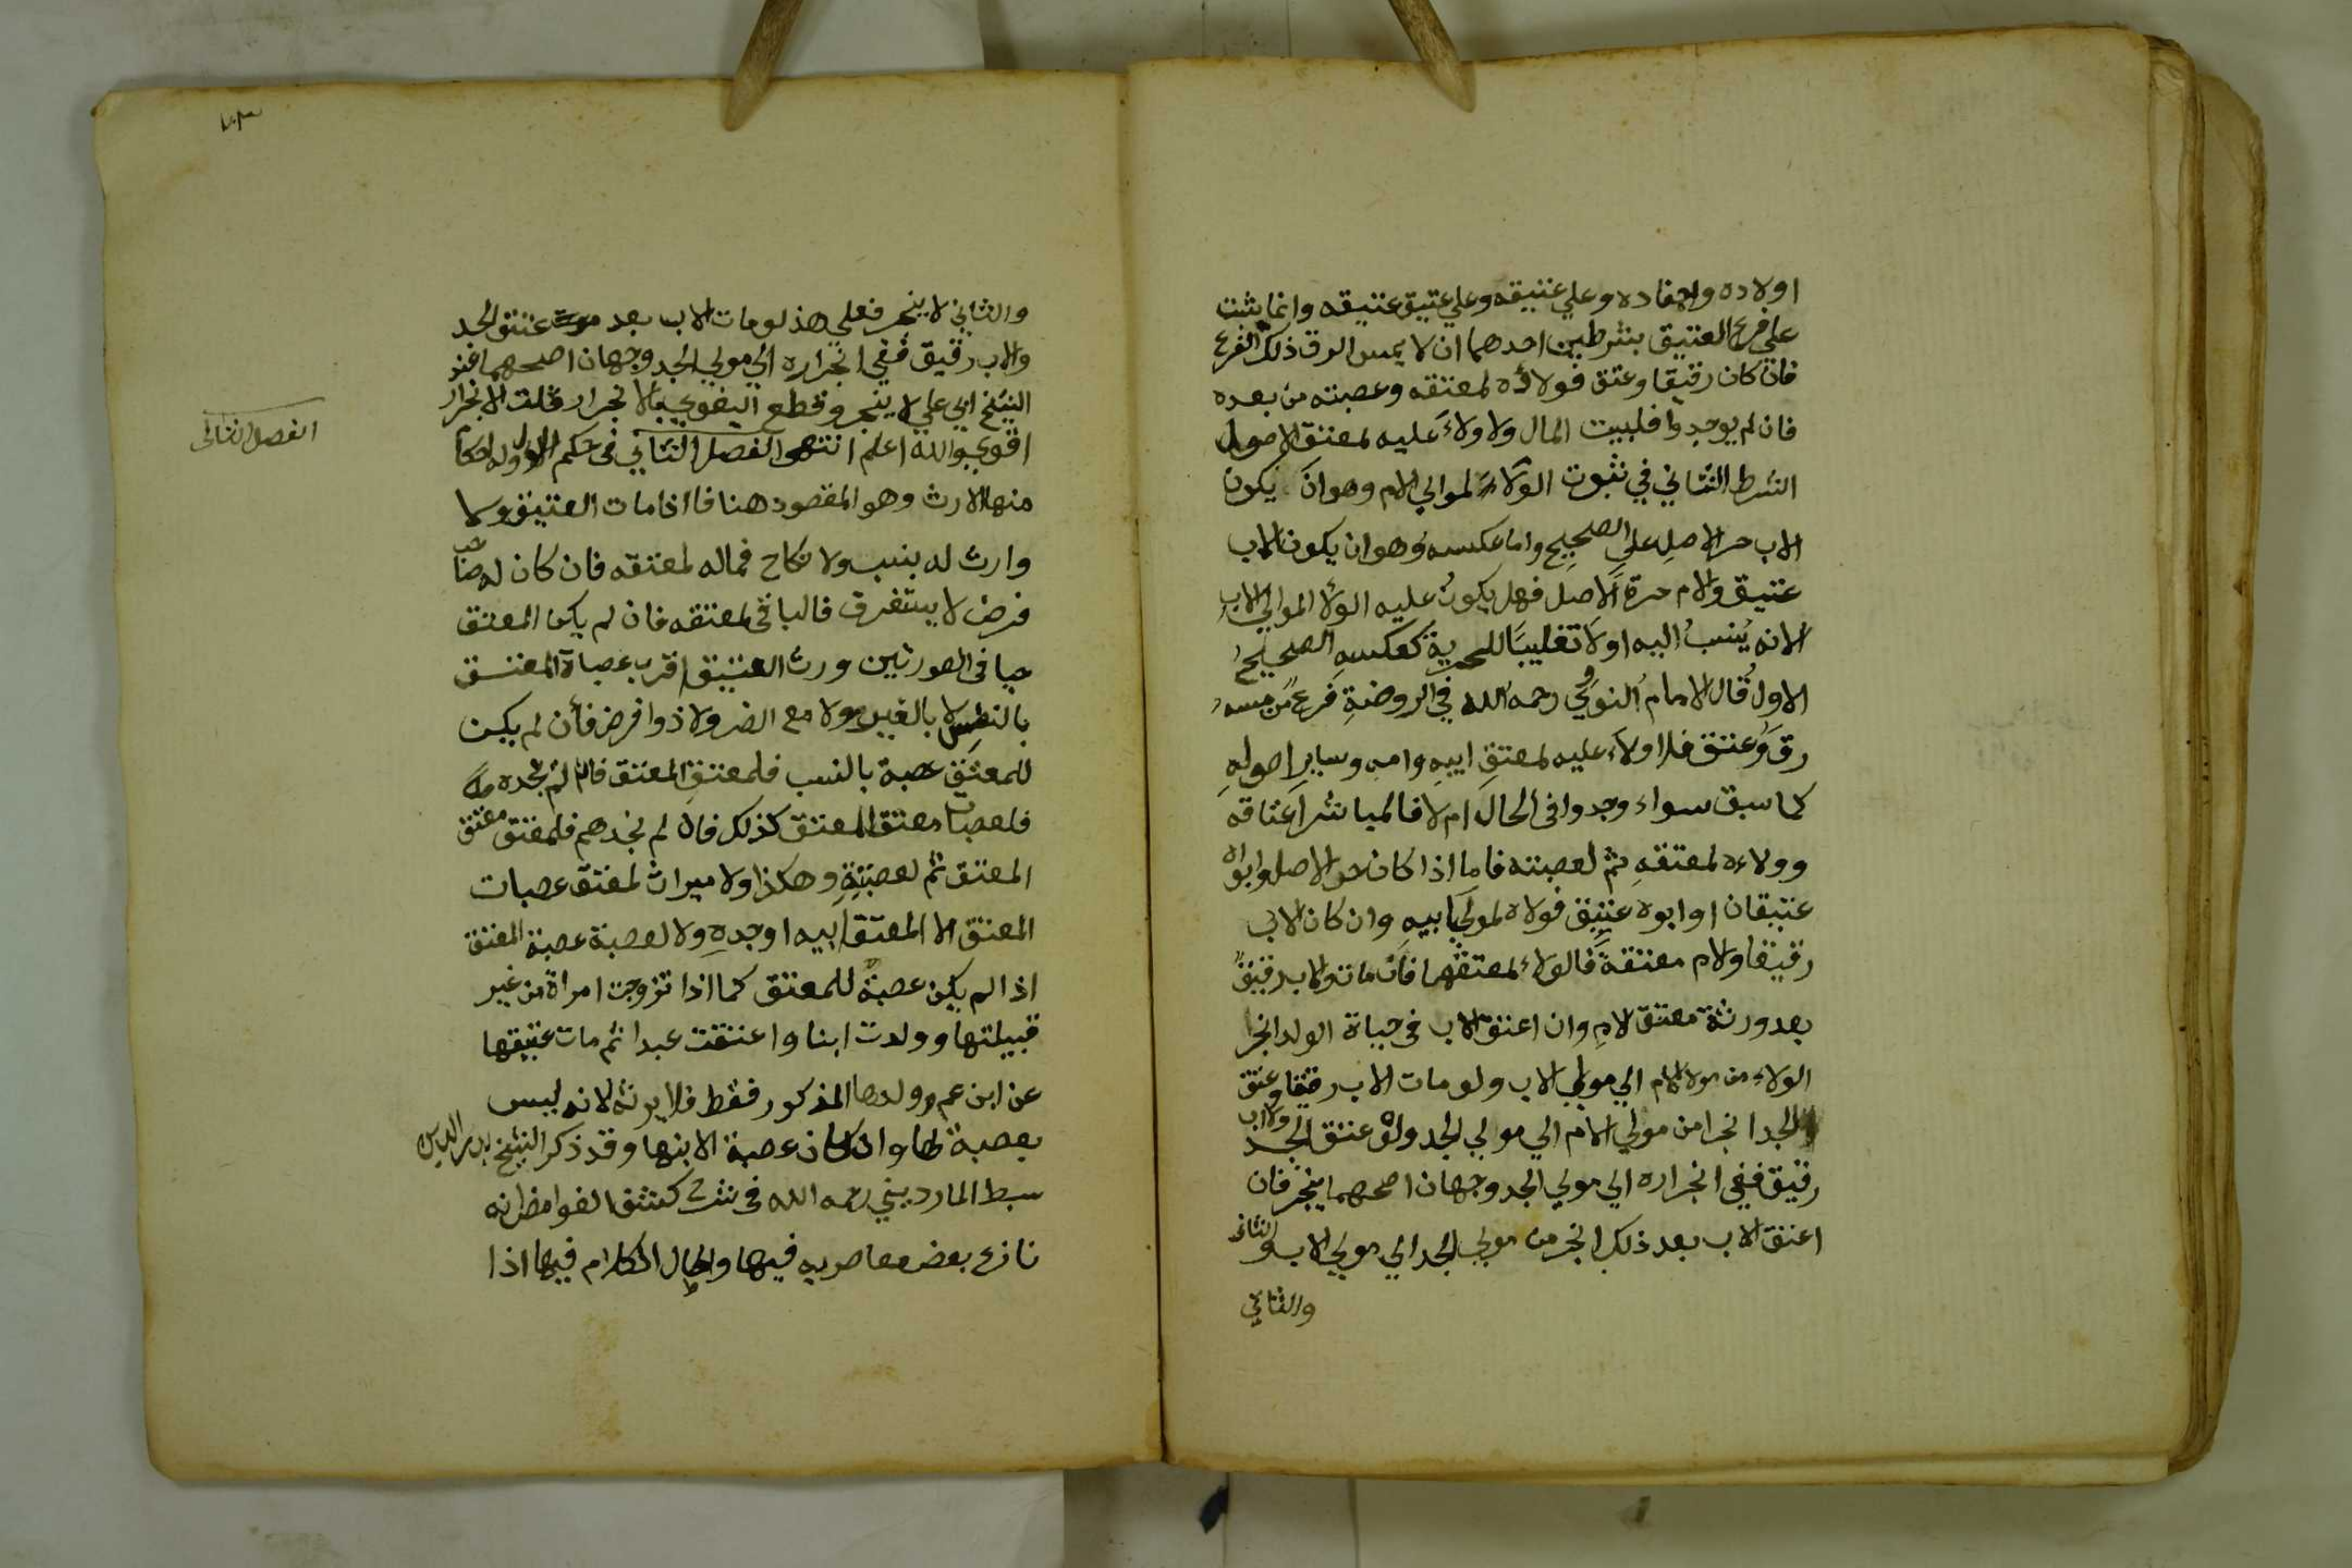 اولاده واحفاده وعلي عتيقه وعلي عتيق عتيقه وانما يثبت
علي فرع العتيق بشرطين احدهما ان لا يمس الرق ذلك الفرع
فان كان رقيقا وعتق فولاؤه لمعتقه وعصبته من بعده
فان لم يوجدوا فلبيت المال ولا ولاء عليه لمعتق الاصول
الشرط الثاني في ثبوت الولاء لموالي الام وهو ان يكون
الاب حر الاصل علي الصحيح واما عكسه وهو ان يكون الاب
عتيق والام حرة الاصل فهل يكون عليه الولا الموالي الاب
لانه ينسب اليه اولا تغليبا للحرية كعكسه الصحيح
الاول قال الامام النووي رحمه الله في الروضة فرع من مسه
رق وعتق فلا ولاء عليه لمعتق ابيه وامه وساير اصوله
كما سبق سواء وجدوا في الحال ام لا فالمباشر اعتاقه
وولاءه لمعتقه ثم لعصبته فاما اذا كان حر الاصل وابواه
عتيقان او ابوه عتيق فولاه لمولي ابيه وان كان الاب
رقيقا والام معتقة فالولاء لمعتقها فان مات والاب رقيق
بعد ورثة معتق الام وان اعتق الاب في حياة الولد انجر
الولاء من مولا الام الي مولي الاب ولو مات الاب رقيقا وعتق
الجد انجرا من مولي الام الي مولي الجد ولو عتق الجد والاب
رقيق ففي انجراره الي مولي الجد وجهان اصحهما ينجر فان
اعتق الاب بعد ذلك انجر من مولي الجد الي مولي الاب والثاني
والثاني
والثاني لا ينجر فعلي هذا لو مات الاب بعد عتق الجد
والاب رقيق ففي انجراره الي مولي الجد وجهان اصحهما عند
الشيخ ابي علي لا ينجر وقطع البغوي بالانجرار قلت الانجرار
اقوي والله اعلم انتهى الفصل الثاني في حكم الولا وله احكام
الفصل الثاني
منها الارث وهو المقصود هنا فاذا مات العتيق ولا
وارث له بنسب ولا نكاح فماله لمعتقه فان كان له صاحب
فرض لا يستغرق فالباقي لمعتقه فان لم يكن المعتق
حيا في الصورتين ورث العتيق اقرب عصباة المعتق
بالنفس لا بالغير ولا مع الغير ولا ذوا فرض فأن لم يكن
للمعتق عصبة بالنسب فلمعتق المعتق فان لم نجده
فلعصبات معتق المعتق كذلك فان لم نجدهم فلمعتق معتق
المعتق ثم لعصبته وهكذا ولا ميراث لمعتق عصبات
المعتق الا المعتق ابيه او جده ولا لعصبة عصبة المعتق
اذا لم يكن عصبة للمعتق كما اذا تزوجت امراة من غير
قبيلتها وولدت ابنا واعتقت عبدا ثم مات عتيقها
عن ابن عم ولدها المذكور فقط فلا يرثه لانه ليس
بعصبة لها وان كان عصبة لابنها وقد ذكر الشيخ بدر الدين
سبط المارديني رحمه الله في شرح كشف الغوامض انه
نازع بعض معاصريه فيها واطال الكلام فيها اذا